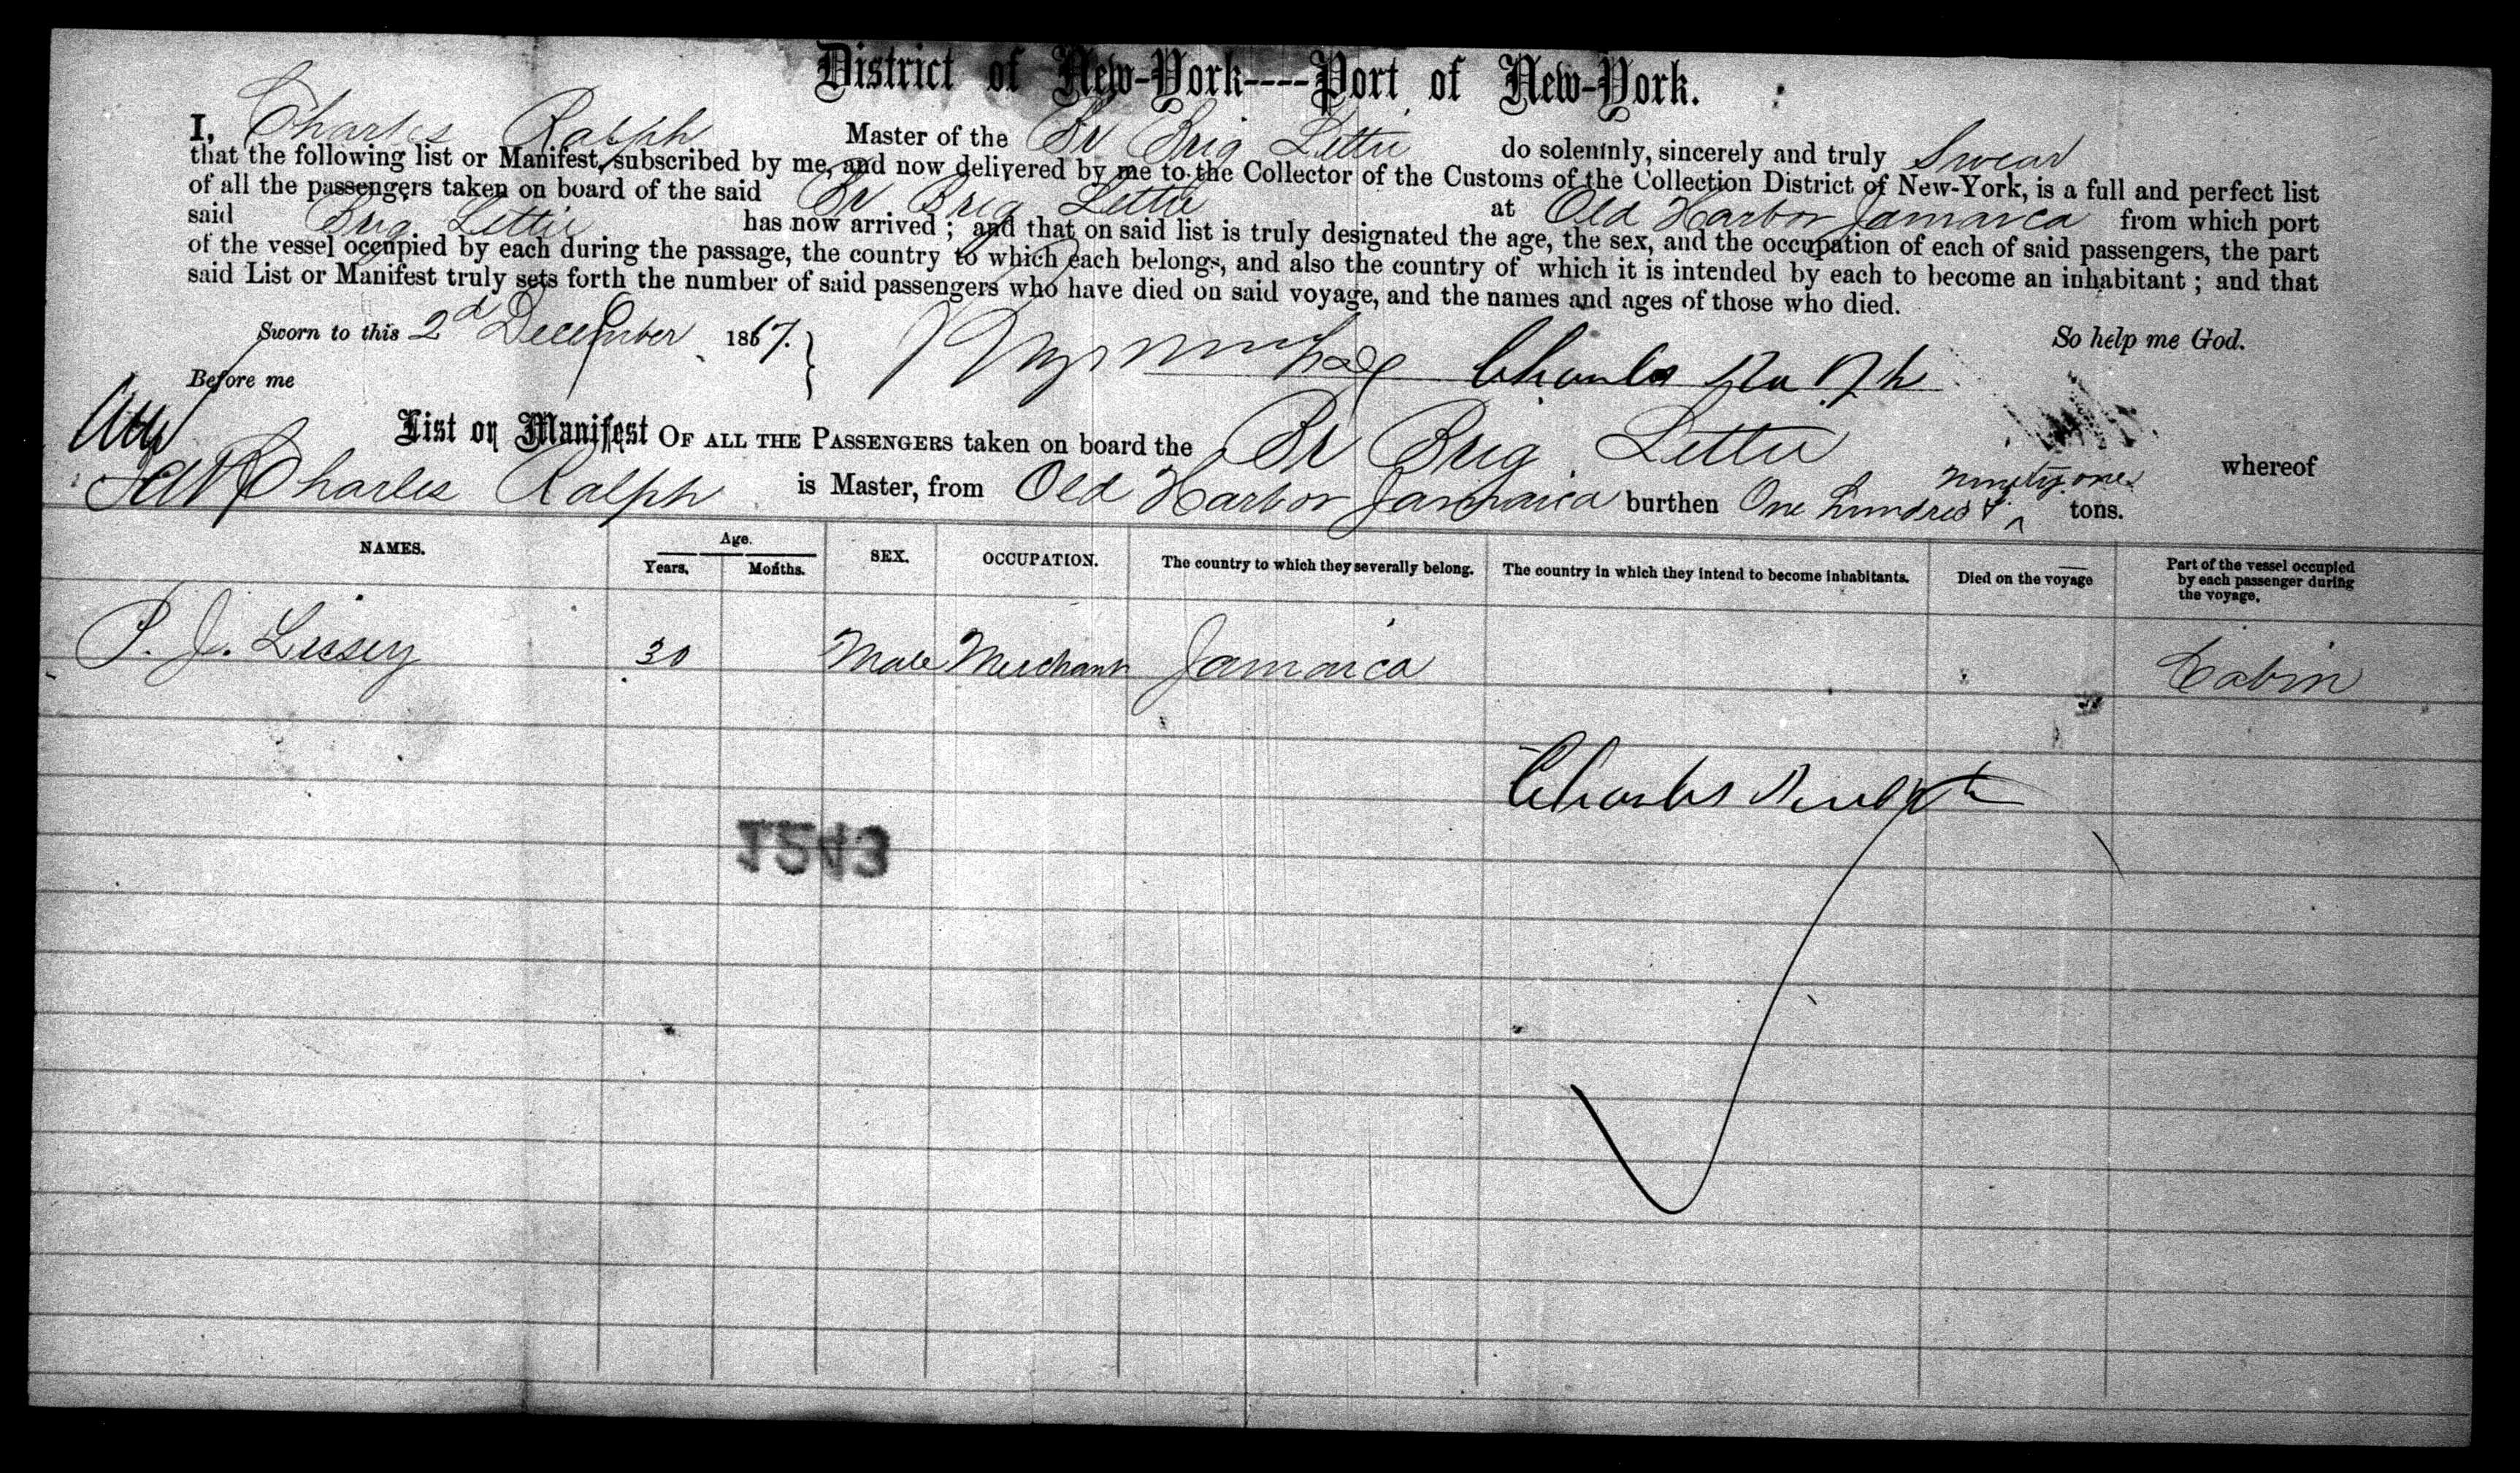 District of New-York----Port of New-York.
I, Charles Ralph Master of the Br Brig Lettie do solemnly, sincerely and truly Swear
that the following list or Manifest, subscribed by me, and now delivered by me to the Collector of the Customs of the Collection District of New-York, is a full and perfect list
of all the passengers taken on board of the said Br Brig Lettie at Old Harbor Jamaica from which port
said Brig Lettie has now arrived; and that on said list is truly designated the age, the sex, and the occupation of each of said passengers, the part
of the vessel occupied by each during the passage, the country to which each belongs, and also the country of which it is intended by each to become an inhabitant; and that
said List or Manifest truly sets forth the number of said passengers who have died on said voyage, and the names and ages of those who died.
Sworn to this 2d December 1867. So help me God.
Before me Charles Ralph
List or Manifest OF ALL THE PASSENGERS taken on board the Br Brig Lettie whereof
Charles Ralph is Master, from Old Harbor Jamaica burthen One hundred & ninety one tons.
NAMES. Age. Years. Months. SEX. OCCUPATION. The country to which they severally belong. The country in which they intend to become inhabitants. Died on the voyage Part of the vessel occupied by each passenger during the voyage.
P. J. 30 Male Merchant Jamaica Cabin
Charles Ralph
1543